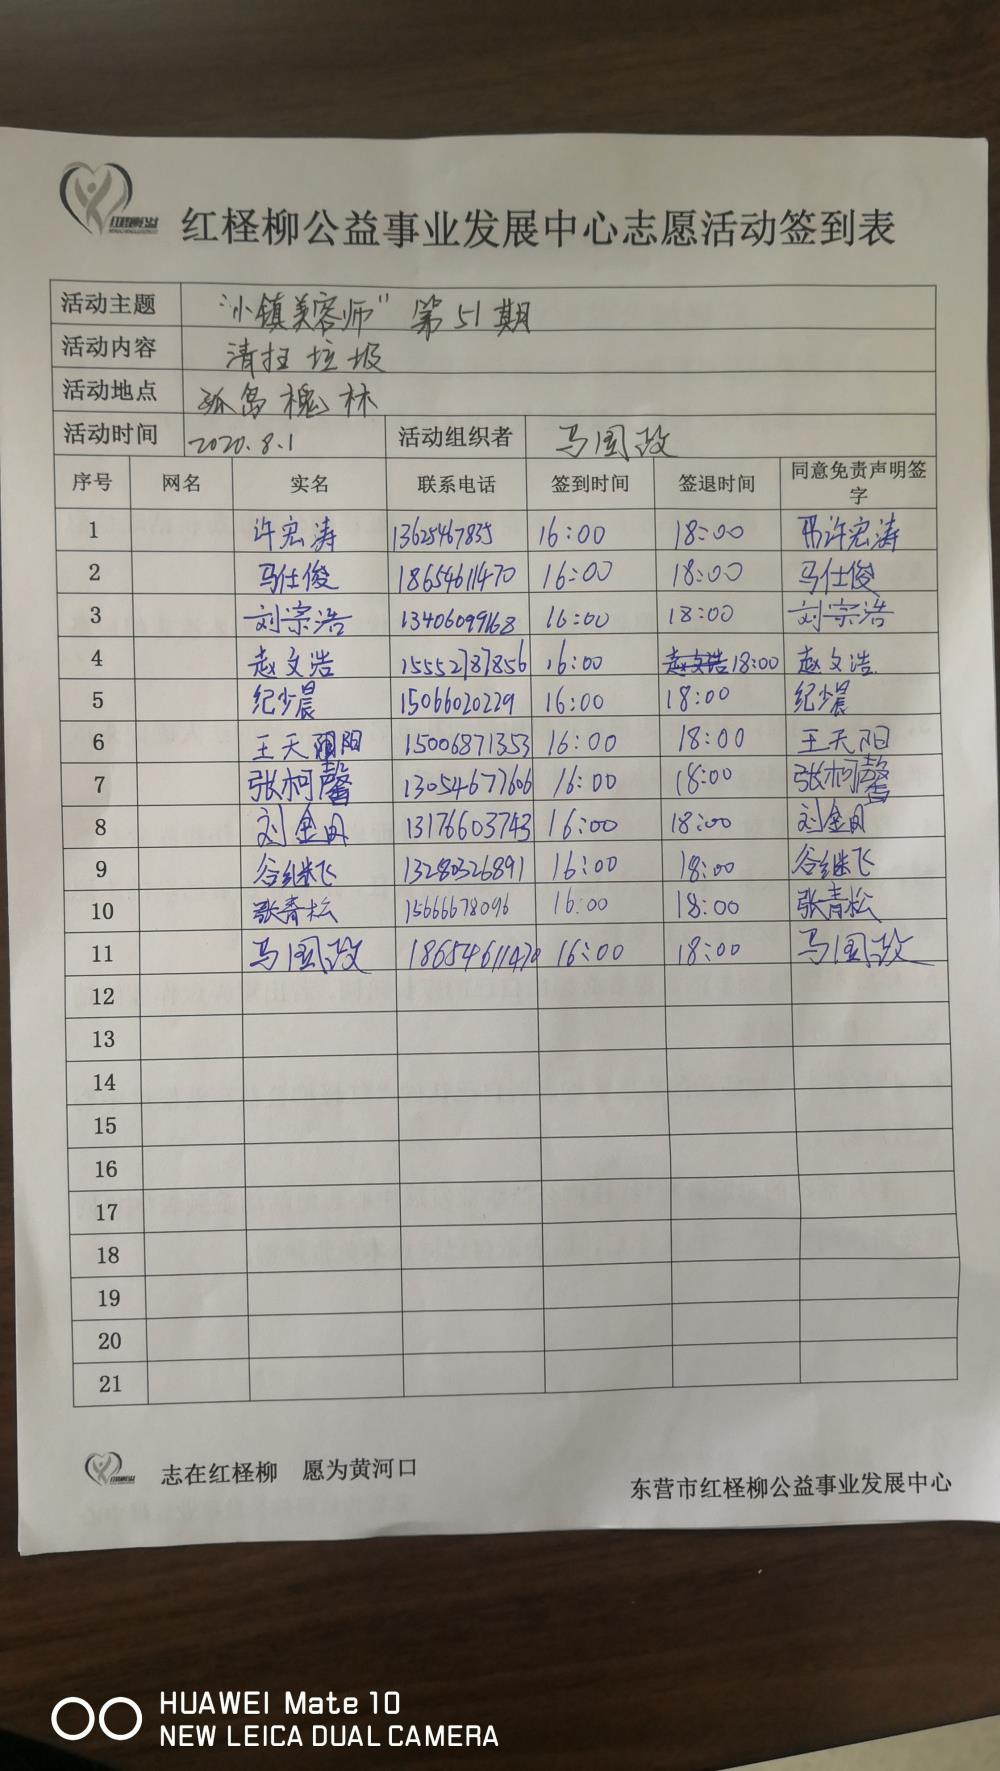 红柽柳公益
红柽柳公益事业发展中心志愿活动签到表
活动主题 “小镇美容师” 第51期
活动内容 清扫垃圾
活动地点 孤岛槐林
活动时间 2020.8.1 活动组织者 马国政
序号 网名 实名 联系电话 签到时间 签退时间 同意免责声明签字
1 许宏涛 13625467835 16:00 18:00 许宏涛
2 马仕俊 18654611470 16:00 18:00 马仕俊
3 刘宗浩 13406099168 16:00 18:00 刘宗浩
4 赵文浩 15552787856 16:00 赵文浩 18:00 赵文浩
5 纪少晨 15066020229 16:00 18:00 纪少晨
6 王天阳 15006871353 16:00 18:00 王天阳
7 张柯馨 13054677606 16:00 18:00 张柯馨
8 刘金月 13176603743 16:00 18:00 刘金月
9 谷继飞 13280326891 16:00 18:00 谷继飞
10 张青松 15666678096 16:00 18:00 张青松
11 马国政 18654611470 16:00 18:00 马国政
12
13
14
15
16
17
18
19
20
21
志在红柽柳 愿为黄河口
东营市红柽柳公益事业发展中心
HUAWEI Mate 10
NEW LEICA DUAL CAMERA